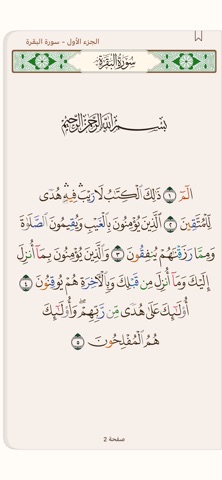 الجزء الأول - سورة البقرة
سُورَةُ البَقَرَةِ
بِسْمِ اللَّهِ الرَّحْمَٰنِ الرَّحِيمِ
الٓمٓ ١ ذَٰلِكَ ٱلْكِتَٰبُ لَا رَيْبَ ۛ فِيهِ ۛ هُدًى
لِّلْمُتَّقِينَ ٢ ٱلَّذِينَ يُؤْمِنُونَ بِٱلْغَيْبِ وَيُقِيمُونَ ٱلصَّلَوٰةَ
وَمِمَّا رَزَقْنَٰهُمْ يُنفِقُونَ ٣ وَٱلَّذِينَ يُؤْمِنُونَ بِمَآ أُنزِلَ
إِلَيْكَ وَمَآ أُنزِلَ مِن قَبْلِكَ وَبِٱلْءَاخِرَةِ هُمْ يُوقِنُونَ ٤
أُو۟لَٰٓئِكَ عَلَىٰ هُدًى مِّن رَّبِّهِمْ ۖ وَأُو۟لَٰٓئِكَ
هُمُ ٱلْمُفْلِحُونَ ٥
صفحة 2